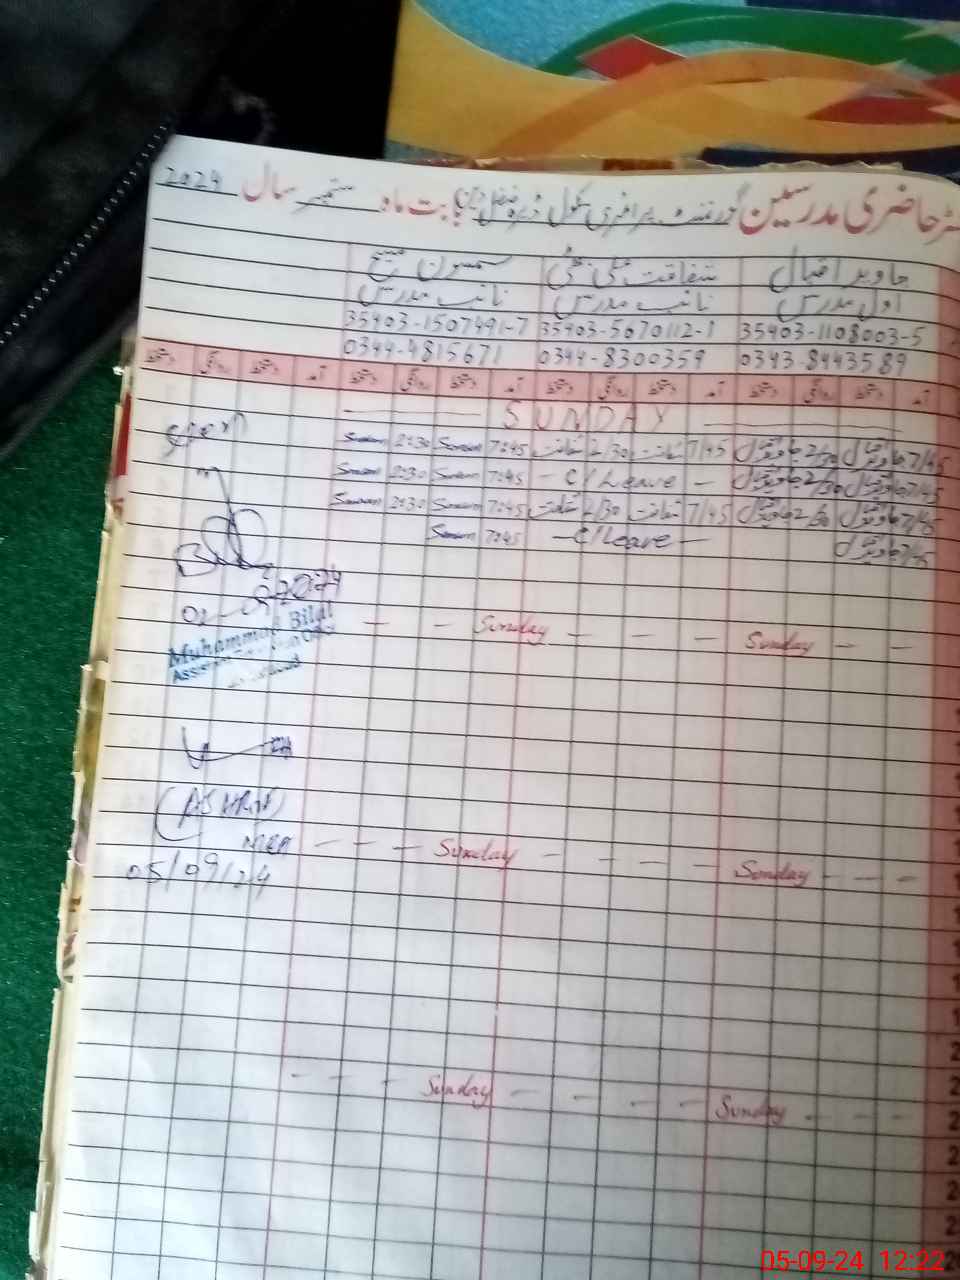 حاضری مدرسین گورنمنٹ پرائمری سکول ڈیرہ فضل دین بابت ماہ ستمبر سال 2024
جاوید اقبال شفاقت علی بھٹی سمسون مسیح
اول مدرس نائب مدرس نائب مدرس
35403-1108003-5 35403-5670112-1 35403-1507491-7
0343-8443589 0344-8300359 0344-4815671
آمد دستخط روانگی دستخط آمد دستخط روانگی دستخط آمد دستخط روانگی دستخط آمد دستخط روانگی دستخط
SUNDAY
7/45 جاوید اقبال 2/30 جاوید اقبال 7/45 شفاقت 2/30 شفاقت 7:45 Samson 2:30 Samson
7/45 جاوید اقبال 2/30 جاوید اقبال - C/Leave - 7:45 Samson 2:30 Samson
7/45 جاوید اقبال 2/30 جاوید اقبال 7/45 شفاقت 2/30 شفاقت 7:45 Samson 2:30 Samson
7/45 جاوید اقبال - C/Leave - 7:45 Samson
Muhammad Bilal
Sunday Sunday
(ASHRAF)
MEA
05/09/24
Sunday Sunday
Sunday Sunday
05-09-24 12:22